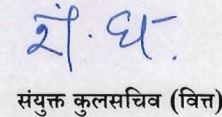 शै. ध.
संयुक्त कुलसचिव (वित्त)